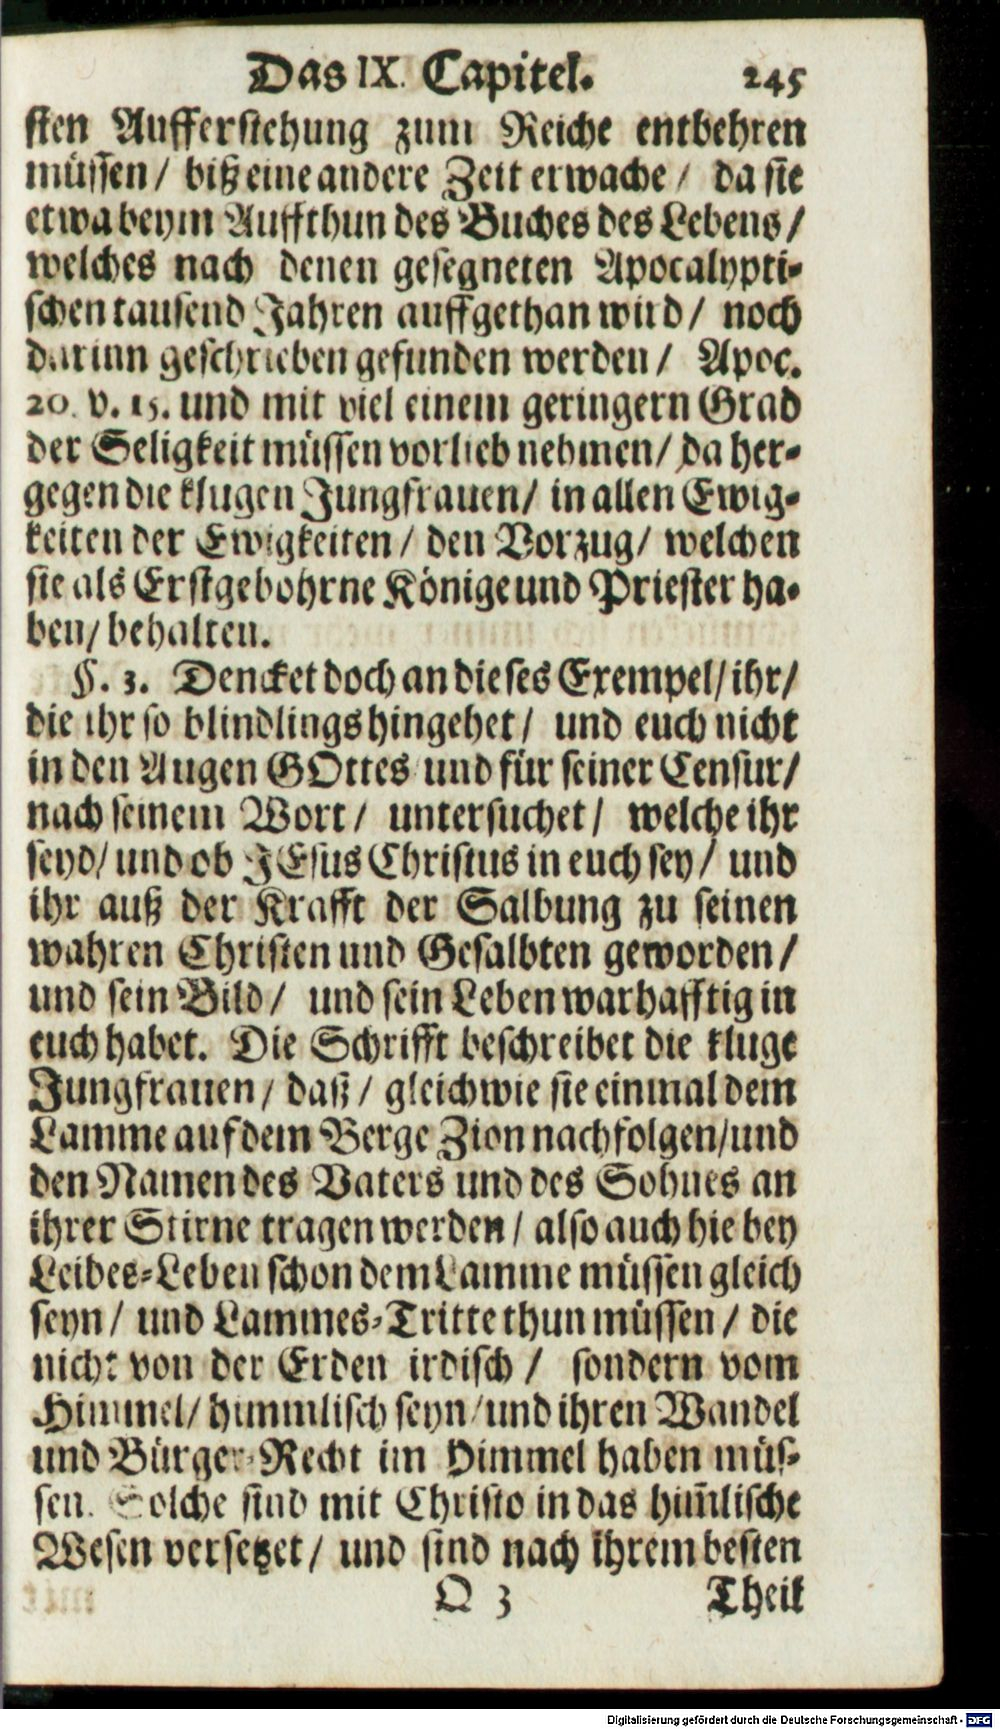 Das IX. Capitel. 245
sten Aufferstehung zum Reiche entbehren
müssen / biß eine andere Zeit erwache / da sie
etwa beym Auffthun des Buches des Lebens /
welches nach denen gesegneten Apocalypti-
schen tausend Jahren auffgethan wird / noch
darinn geschrieben gefunden werden / Apoc.
20. v. 15. und mit viel einem geringern Grad
der Seligkeit müssen vorlieb nehmen / da her-
gegen die klugen Jungfrauen / in allen Ewig-
keiten der Ewigkeiten / den Vorzug / welchen
sie als Erstgebohrne Könige und Priester ha-
ben / behalten.
§. 3. Dencket doch an dieses Exempel / ihr /
die ihr so blindlings hingehet / und euch nicht
in den Augen GOttes und für seiner Censur /
nach seinem Wort / untersuchet / welche ihr
seyd / und ob JEsus Christus in euch sey / und
ihr auß der Krafft der Salbung zu seinen
wahren Christen und Gesalbten geworden /
und sein Bild / und sein Leben warhafftig in
euch habet. Die Schrifft beschreibet die kluge
Jungfrauen / daß / gleichwie sie einmal dem
Lamme auf dem Berge Zion nachfolgen / und
den Namen des Vaters und des Sohnes an
ihrer Stirne tragen werden / also auch hie bey
Leibes-Leben schon dem Lamme müssen gleich
seyn / und Lammes-Tritte thun müssen / die
nicht von der Erden irdisch / sondern vom
Himmel / himmlisch seyn / und ihren Wandel
und Bürger-Recht im Himmel haben müs-
sen. Solche sind mit Christo in das him̃lische
Wesen versetzet / und sind nach ihrem besten
Q 3 Theil
Digitalisierung gefördert durch die Deutsche Forschungsgemeinschaft - DFG